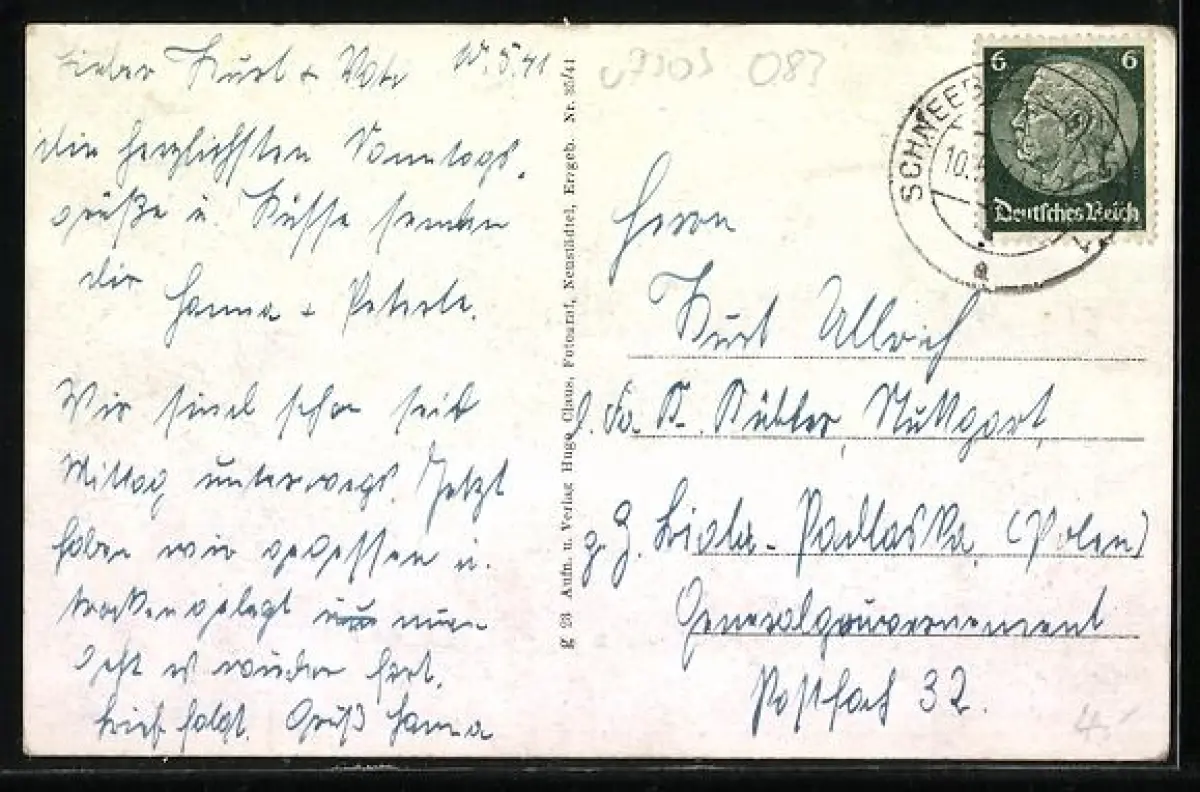 Lieber Kurt + Vater 10.5.41
die herzlichsten Sonntags-
grüße u. Küsse senden
dir Hanna + Peterle.
Wir sind schon seit
Mittag unterwegs. Jetzt
haben wir gegessen u.
trockengelegt nun
geht es wieder fort.
Brief folgt. Gruß Hanna
g 23 Aufn. u. Verlag Hugo Claus, Fotoanst., Neustädtel, Erzgeb. Nr. 35/41
6 6
Deutsches Reich
SCHNEEB
10.
a
Herrn
Kurt Ullrich
Fa. K. Kübler, Stuttgart,
z. Z. Biala-Padlaska, (Polen)
Generalgouvernement
Postfach 32.